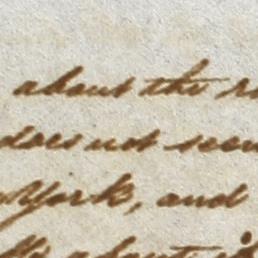 about the
does not seem
York, and
about